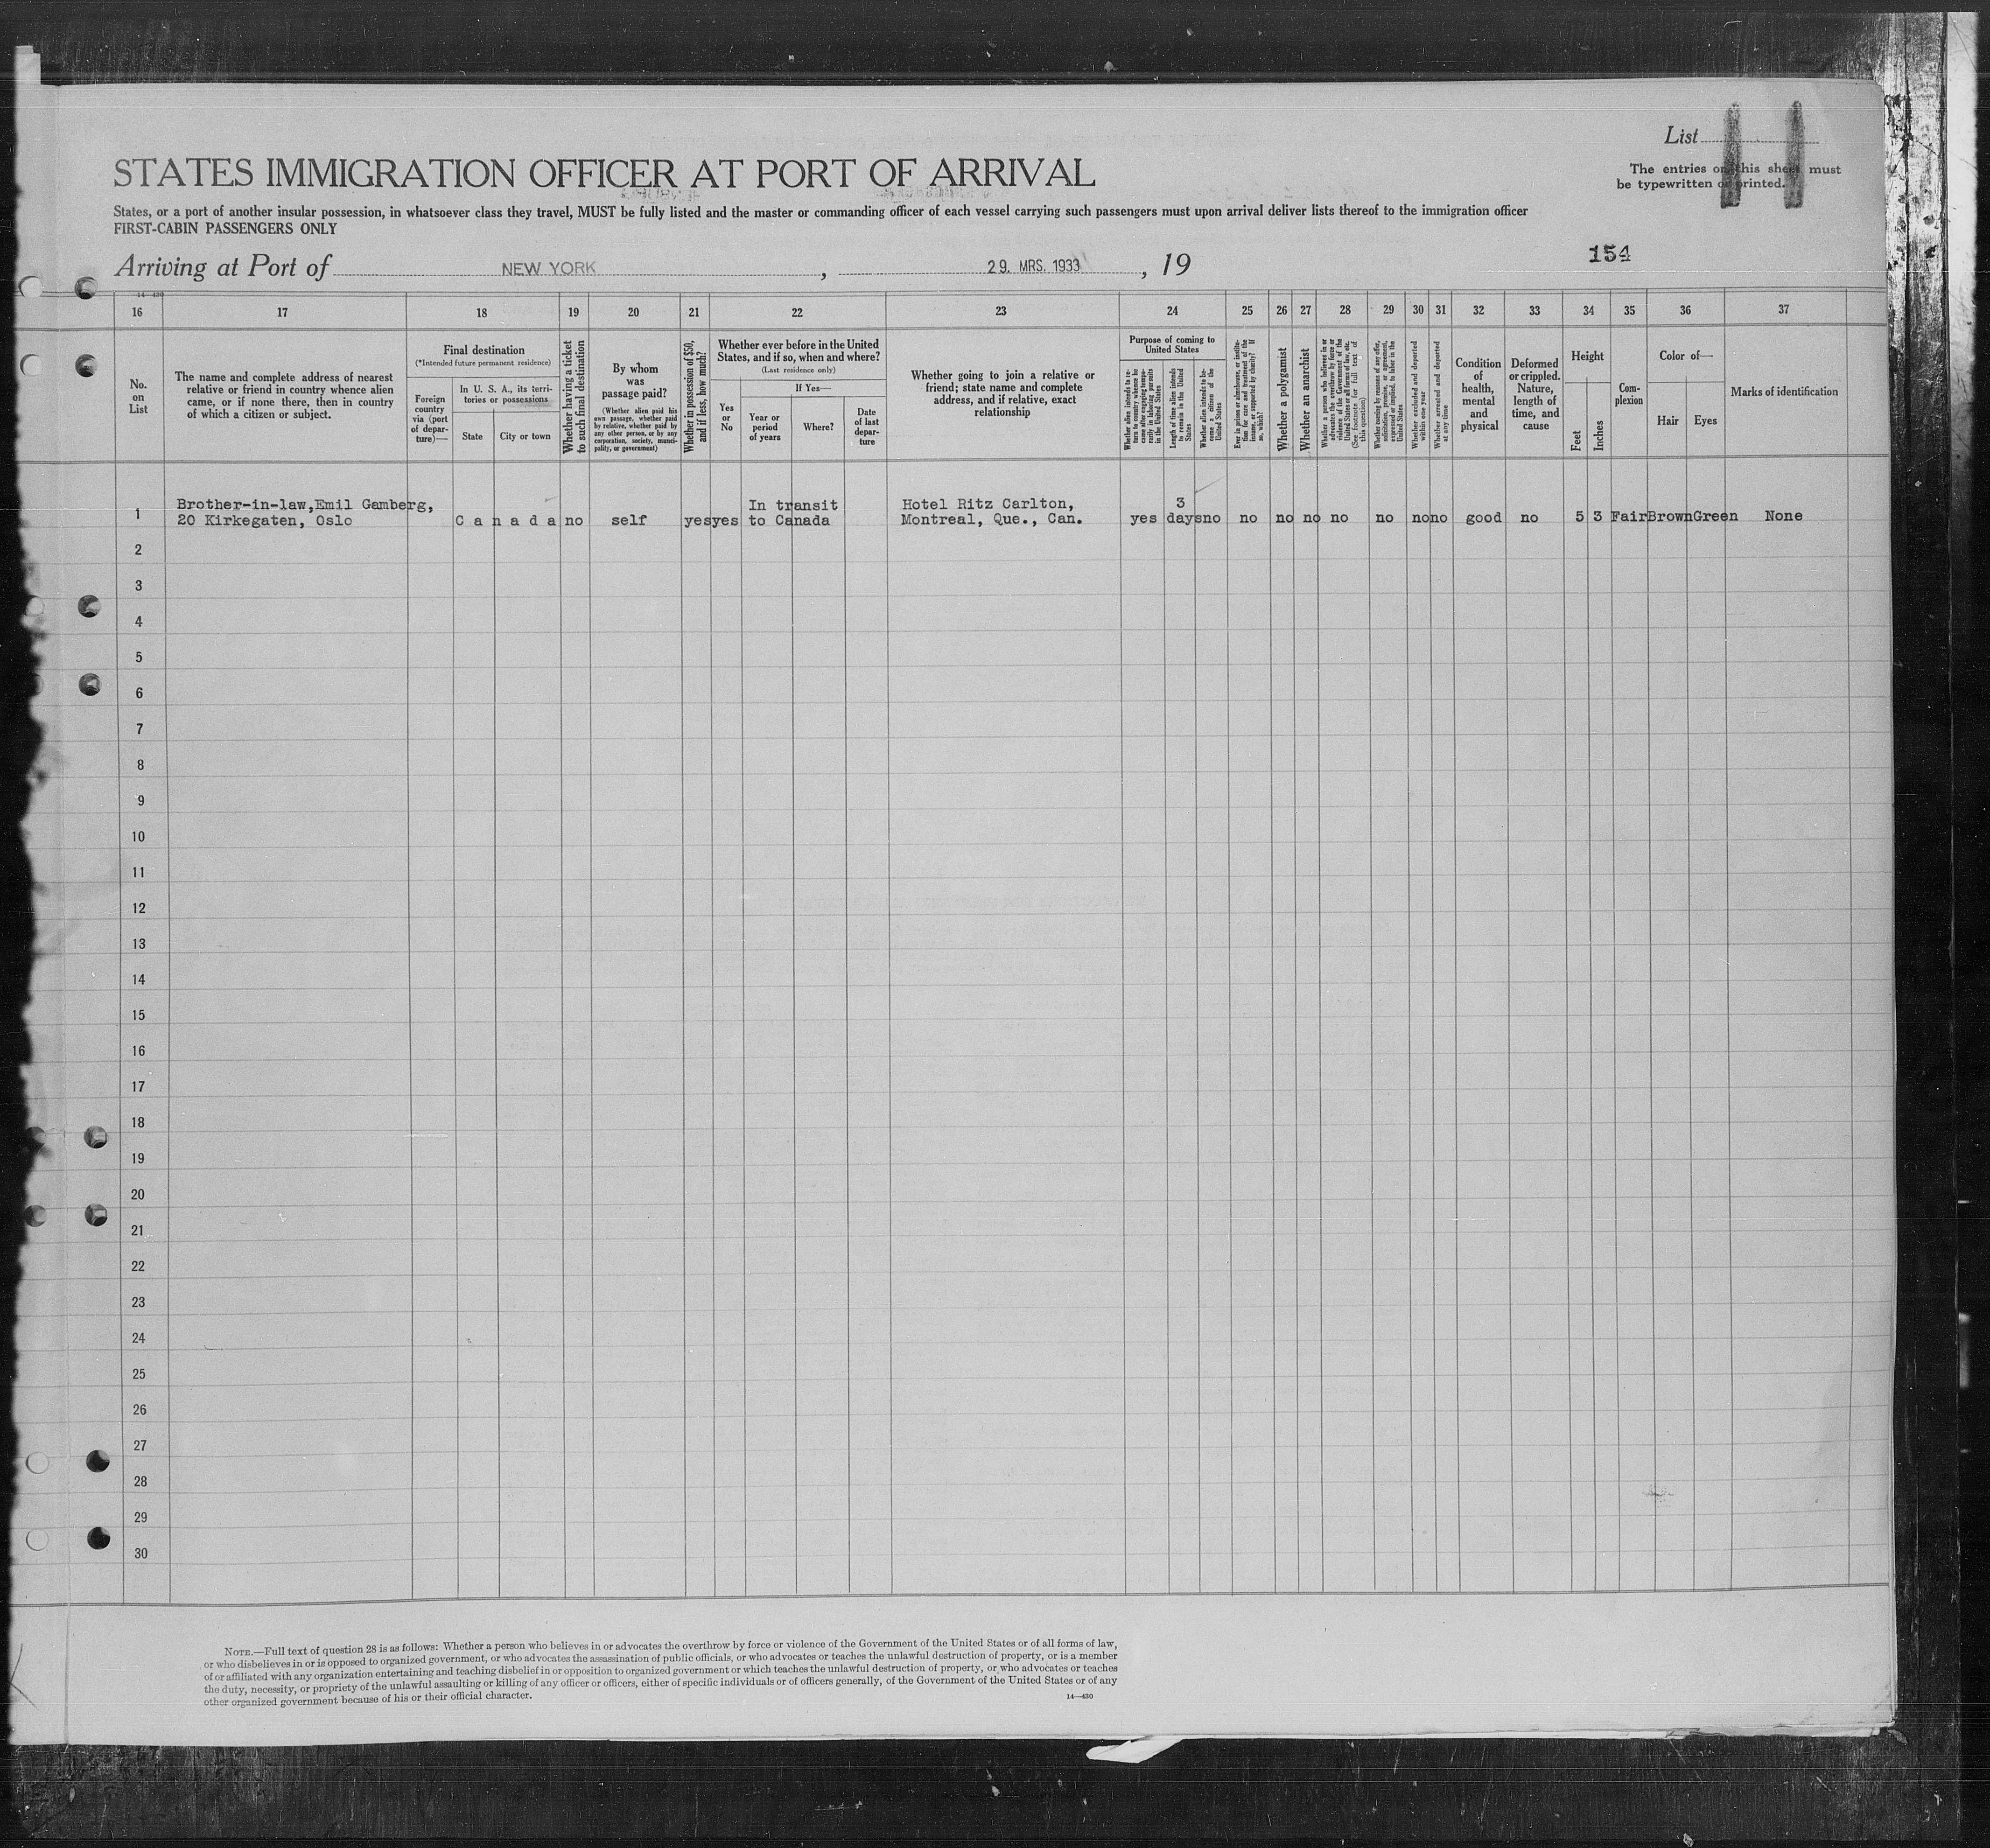 List 11
The entries on this sheet must
be typewritten or printed.
STATES IMMIGRATION OFFICER AT PORT OF ARRIVAL
States, or a port of another insular possession, in whatsoever class they travel, MUST be fully listed and the master or commanding officer of each vessel carrying such passengers must upon arrival deliver lists thereof to the immigration officer
FIRST-CABIN PASSENGERS ONLY
154
Arriving at Port of NEW YORK, 29. MRS. 1933, 19
14—430
16 17 18 19 20 21 22 23 24 25 26 27 28 29 30 31 32 33 34 35 36 37
No.
on
List
The name and complete address of nearest
relative or friend in country whence alien
came, or if none there, then in country
of which a citizen or subject.
Final destination
(*Intended future permanent residence)
Foreign
country
via (port
of depar-
ture)—
In U. S. A., its terri-
tories or possessions
State
City or town
Whether having a ticket
to such final destination
By whom
was
passage paid?
(Whether alien paid his
own passage, whether paid
by relative, whether paid by
any other person, or by any
corporation, society, munici-
pality, or government)
Whether in possession of $50,
and if less, how much?
Whether ever before in the United
States, and if so, when and where?
(Last residence only)
Yes
or
No
If Yes—
Year or
period
of years
Where?
Date
of last
depar-
ture
Whether going to join a relative or
friend; state name and complete
address, and if relative, exact
relationship
Purpose of coming to
United States
Whether alien intends to re-
turn to country whence he
came after engaging tempo-
rarily in laboring pursuits
in the United States
Length of time alien intends
to remain in the United
States
Whether alien intends to be-
come a citizen of the
United States
Ever in prison or almshouse, or institu-
tion for care and treatment of the
insane, or supported by charity? If
so, which?
Whether a polygamist
Whether an anarchist
Whether a person who believes in or
advocates the overthrow by force or
violence of the Government of the
United States or all forms of law, etc.
(See footnote for full text of
this question)
Whether coming by reasons of any offer,
solicitation, promise, or agreement,
expressed or implied, to labor in the
United States
Whether excluded and deported
within one year
Whether arrested and deported
at any time
Condition
of
health,
mental
and
physical
Deformed
or crippled.
Nature,
length of
time, and
cause
Height
Feet
Inches
Com-
plexion
Color of—
Hair
Eyes
Marks of identification
1 Brother-in-law,Emil Gamberg,
20 Kirkegaten, Oslo
Canada no self yes yes In transit
to Canada
Hotel Ritz Carlton,
Montreal, Que., Can.
yes 3
days no no no no no no no no good no 5 3 Fair Brown Green None
2
3
4
5
6
7
8
9
10
11
12
13
14
15
16
17
18
19
20
21
22
23
24
25
26
27
28
29
30
NOTE.—Full text of question 28 is as follows: Whether a person who believes in or advocates the overthrow by force or violence of the Government of the United States or of all forms of law,
or who disbelieves in or is opposed to organized government, or who advocates the assassination of public officials, or who advocates or teaches the unlawful destruction of property, or is a member
of or affiliated with any organization entertaining and teaching disbelief in or opposition to organized government or which teaches the unlawful destruction of property, or who advocates or teaches
the duty, necessity, or propriety of the unlawful assaulting or killing of any officer or officers, either of specific individuals or of officers generally, of the Government of the United States or of any
other organized government because of his or their official character.
14—430